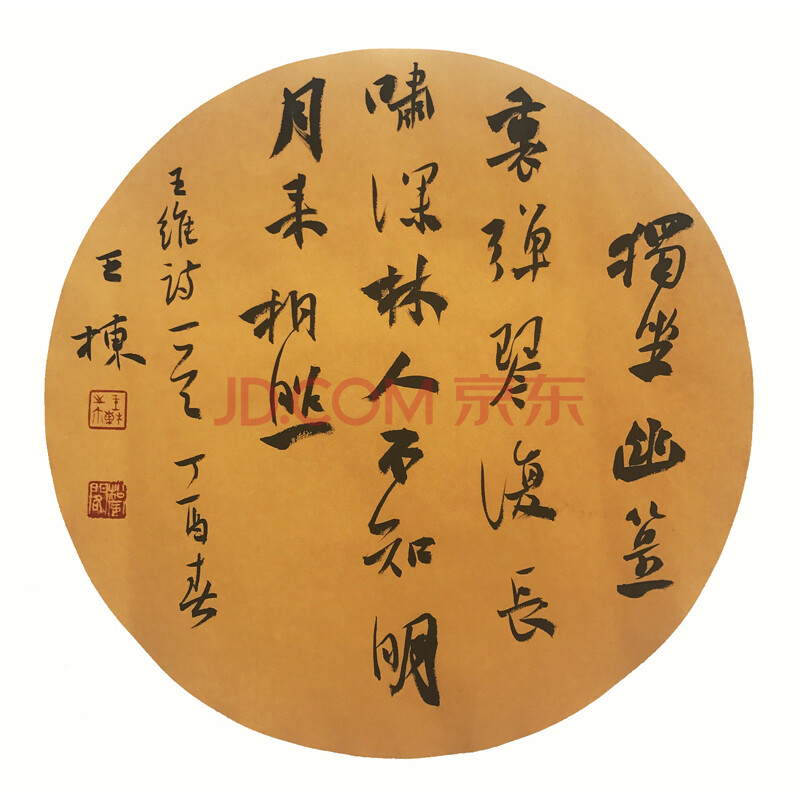 獨坐幽篁
裏彈琴復長
嘯深林人不知明
月来相照
王維詩一首 丁酉春
王棟
JD.COM 京东